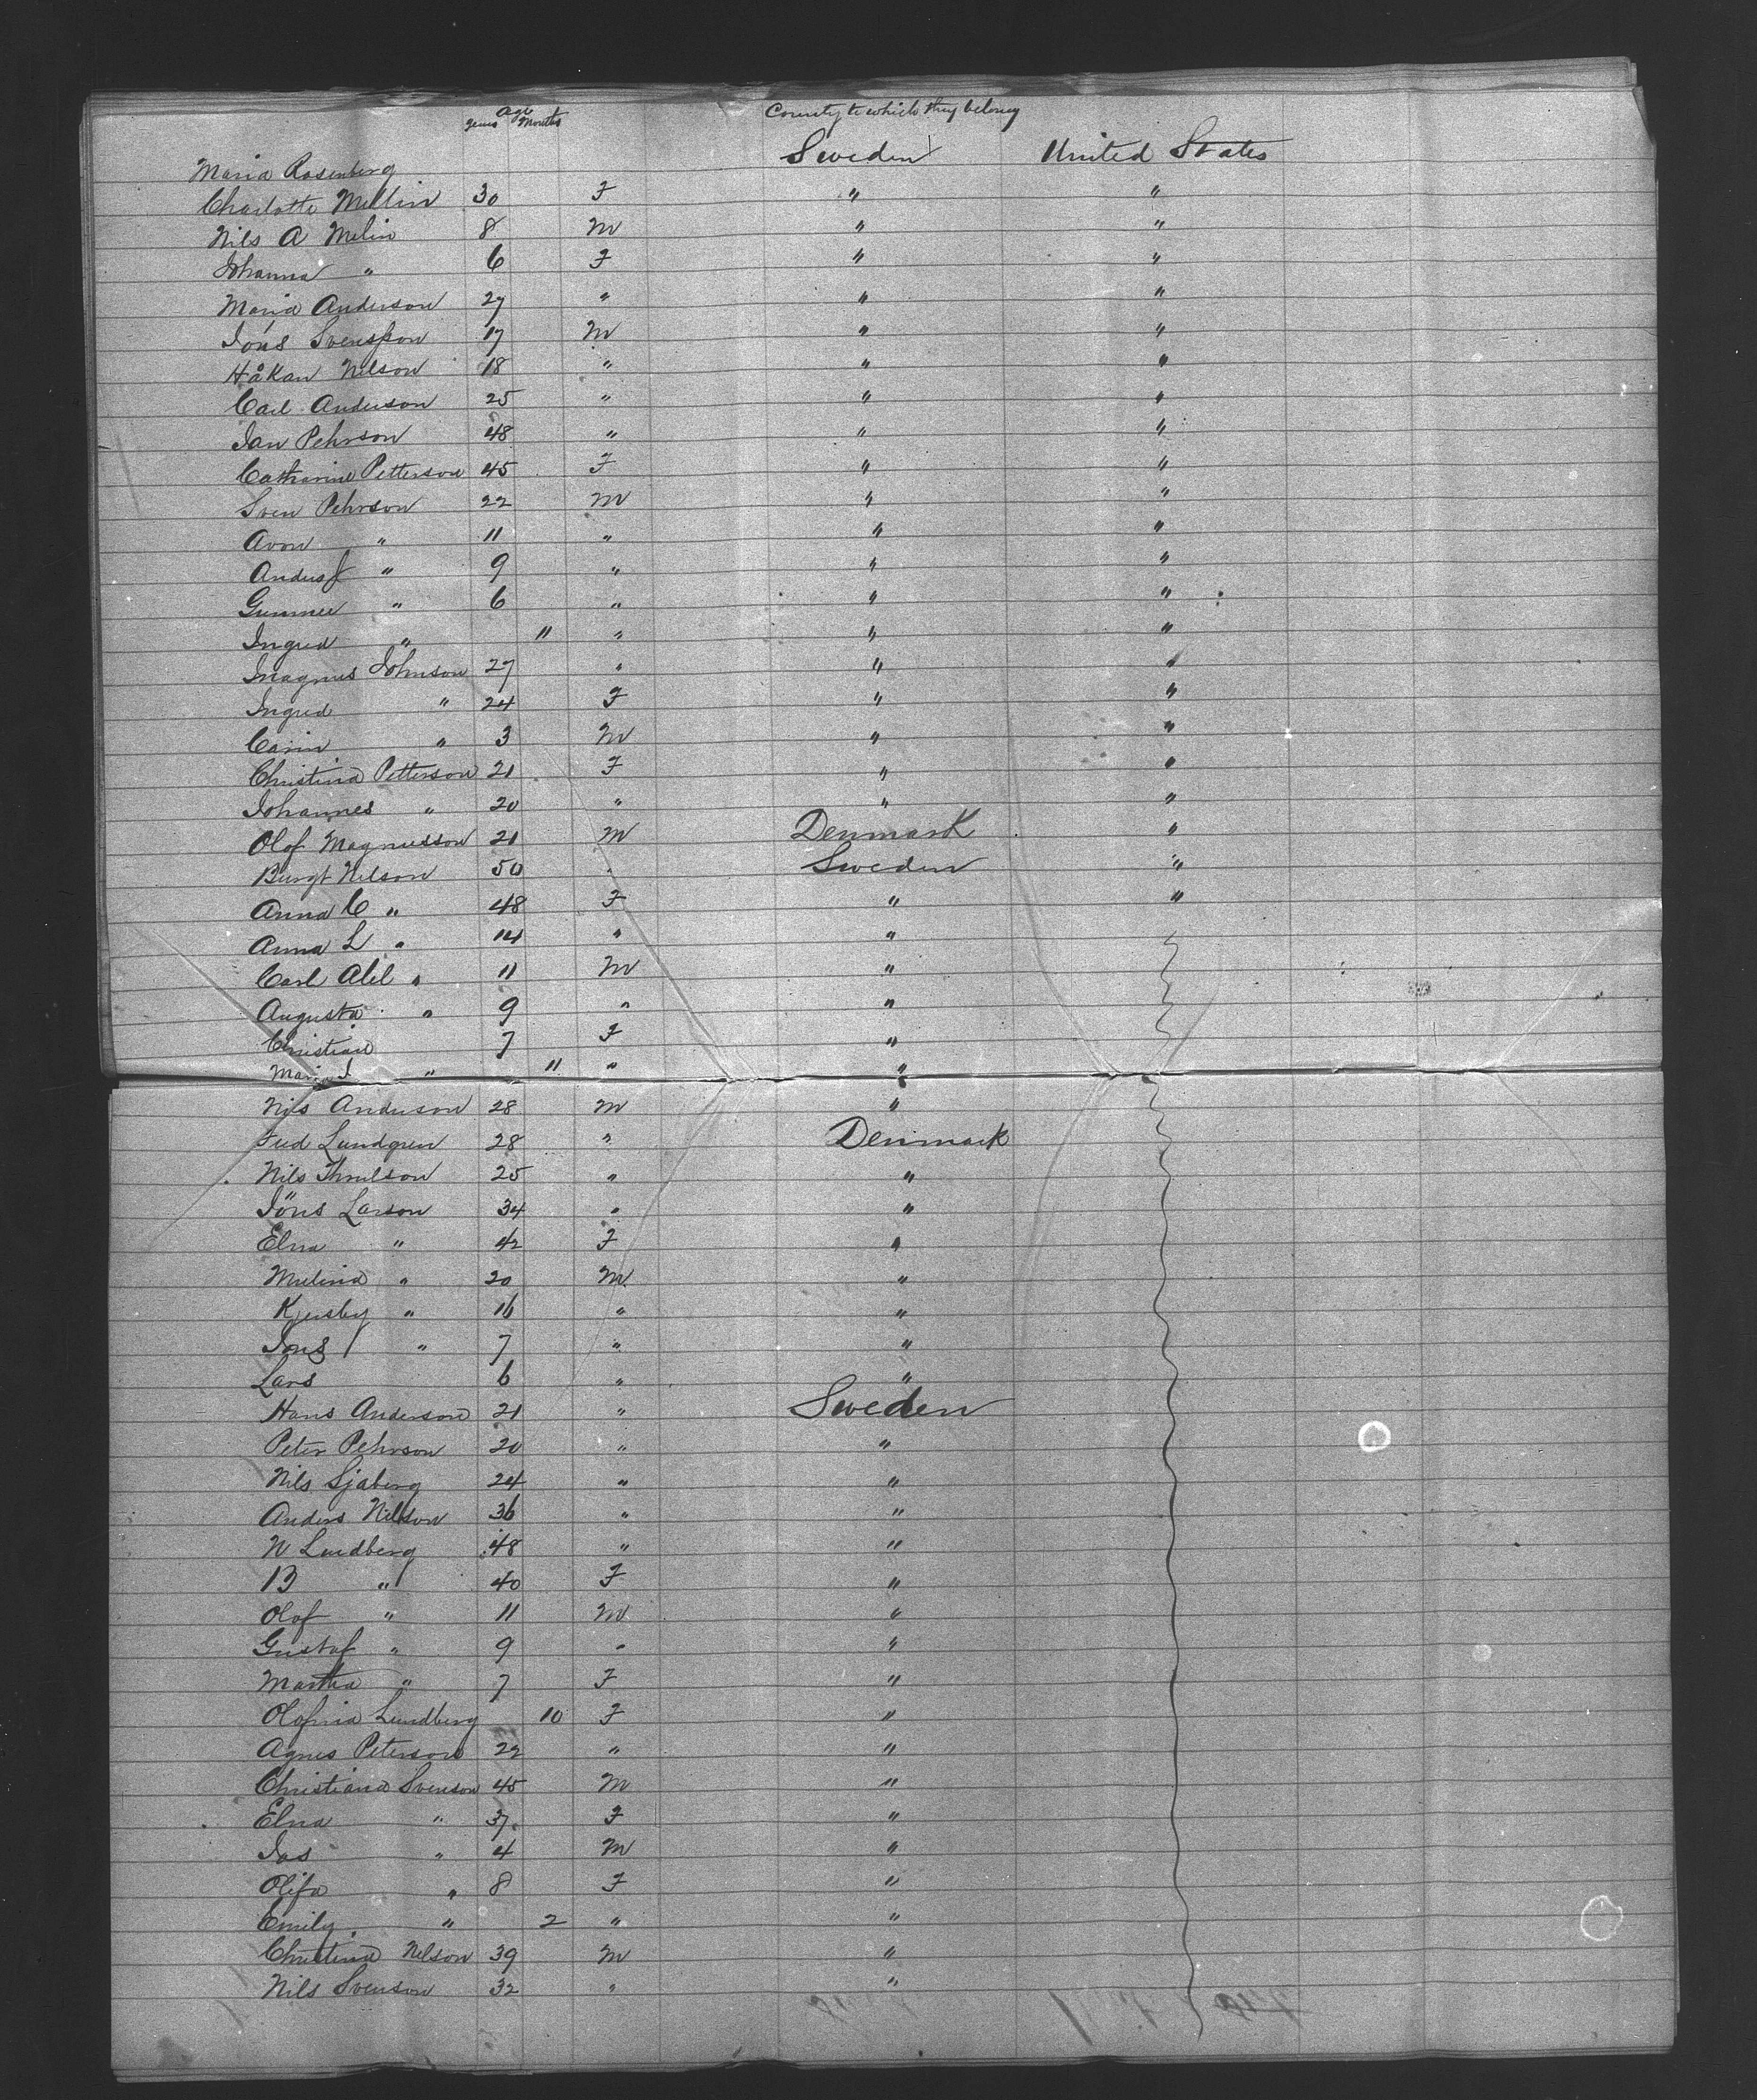 Age
years Months Country to which they belong
Maria Rosenberg Sweden United States
Charlotte Mellin 30 F " "
Nils A Melin 8 M " "
Johanna " 6 F " "
Maria Anderson 27 " " "
Jöns Svensson 17 M " "
Håkan Nelson 18 " " "
Carl Anderson 25 " " "
Jan Pehrson 48 " " "
Catharine Petterson 45 F " "
Sven Pehrson 22 M " "
Avon " 11 " " "
Anders " 9 " " "
" 6 " " "
Ingred " 11 " " "
Magnus Johnson 27 " " "
Ingred " 24 F " "
Carin " 3 M " "
Christina Petterson 21 F " "
Johannes " 20 " " "
Olof Magnusson 21 M Denmark "
Nelson 50 " Sweden "
Anna C " 48 F " "
Anna L " 14 " "
Carl Alel " 11 M "
Augusta " 9 " "
Christian 7 F "
Maria J " 11 " "
Nils Anderson 28 M "
Fred Lundgren 28 " Denmark
Nils 25 " "
Jöns Larson 34 " "
Elna " 42 F "
" 20 M "
" 16 " "
Jons " 7 " "
Lars 6 " "
Hans Anderson 21 " Sweden
Peter Pehrson 20 " "
Nils Sjaberg 24 " "
Anders Nilson 36 " "
N Lundberg 48 " "
B " 40 F "
Olof " 11 M "
Gustaf " 9 " "
Martha " 7 F "
Lundberg 10 F "
Agnes Peterson 22 " "
Christiana Svenson 45 M "
Elna " 37 F "
Jas " 4 M "
Olifa " 8 F "
Emily " 2 " "
Christina Nelson 39 M "
Nils Svenson 32 " "